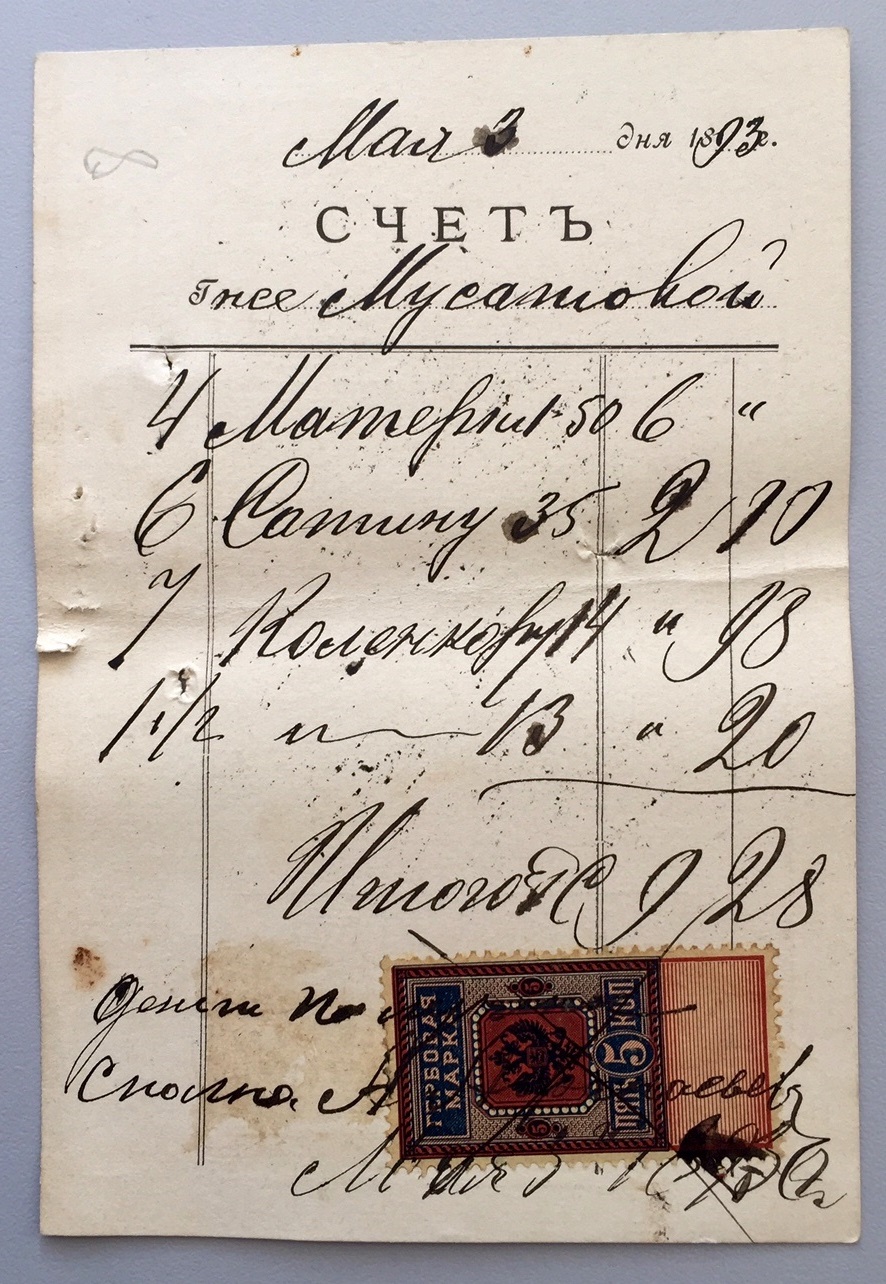 Мая 3 дня 1893 г.
СЧЕТЪ
Гжсе Мусатовой
4 Матерiи 1 50 6 "
6 Сатину 35 2 10
7 Коленкору 14 " 98
1 1/2 " 13 " 20
Итого 9 28
Деньги получилъ
Сполна А
Мая 3 1893 г.
ГЕРБОВАЯ МАРКА
ПЯТЬ 5 КОП
5
5